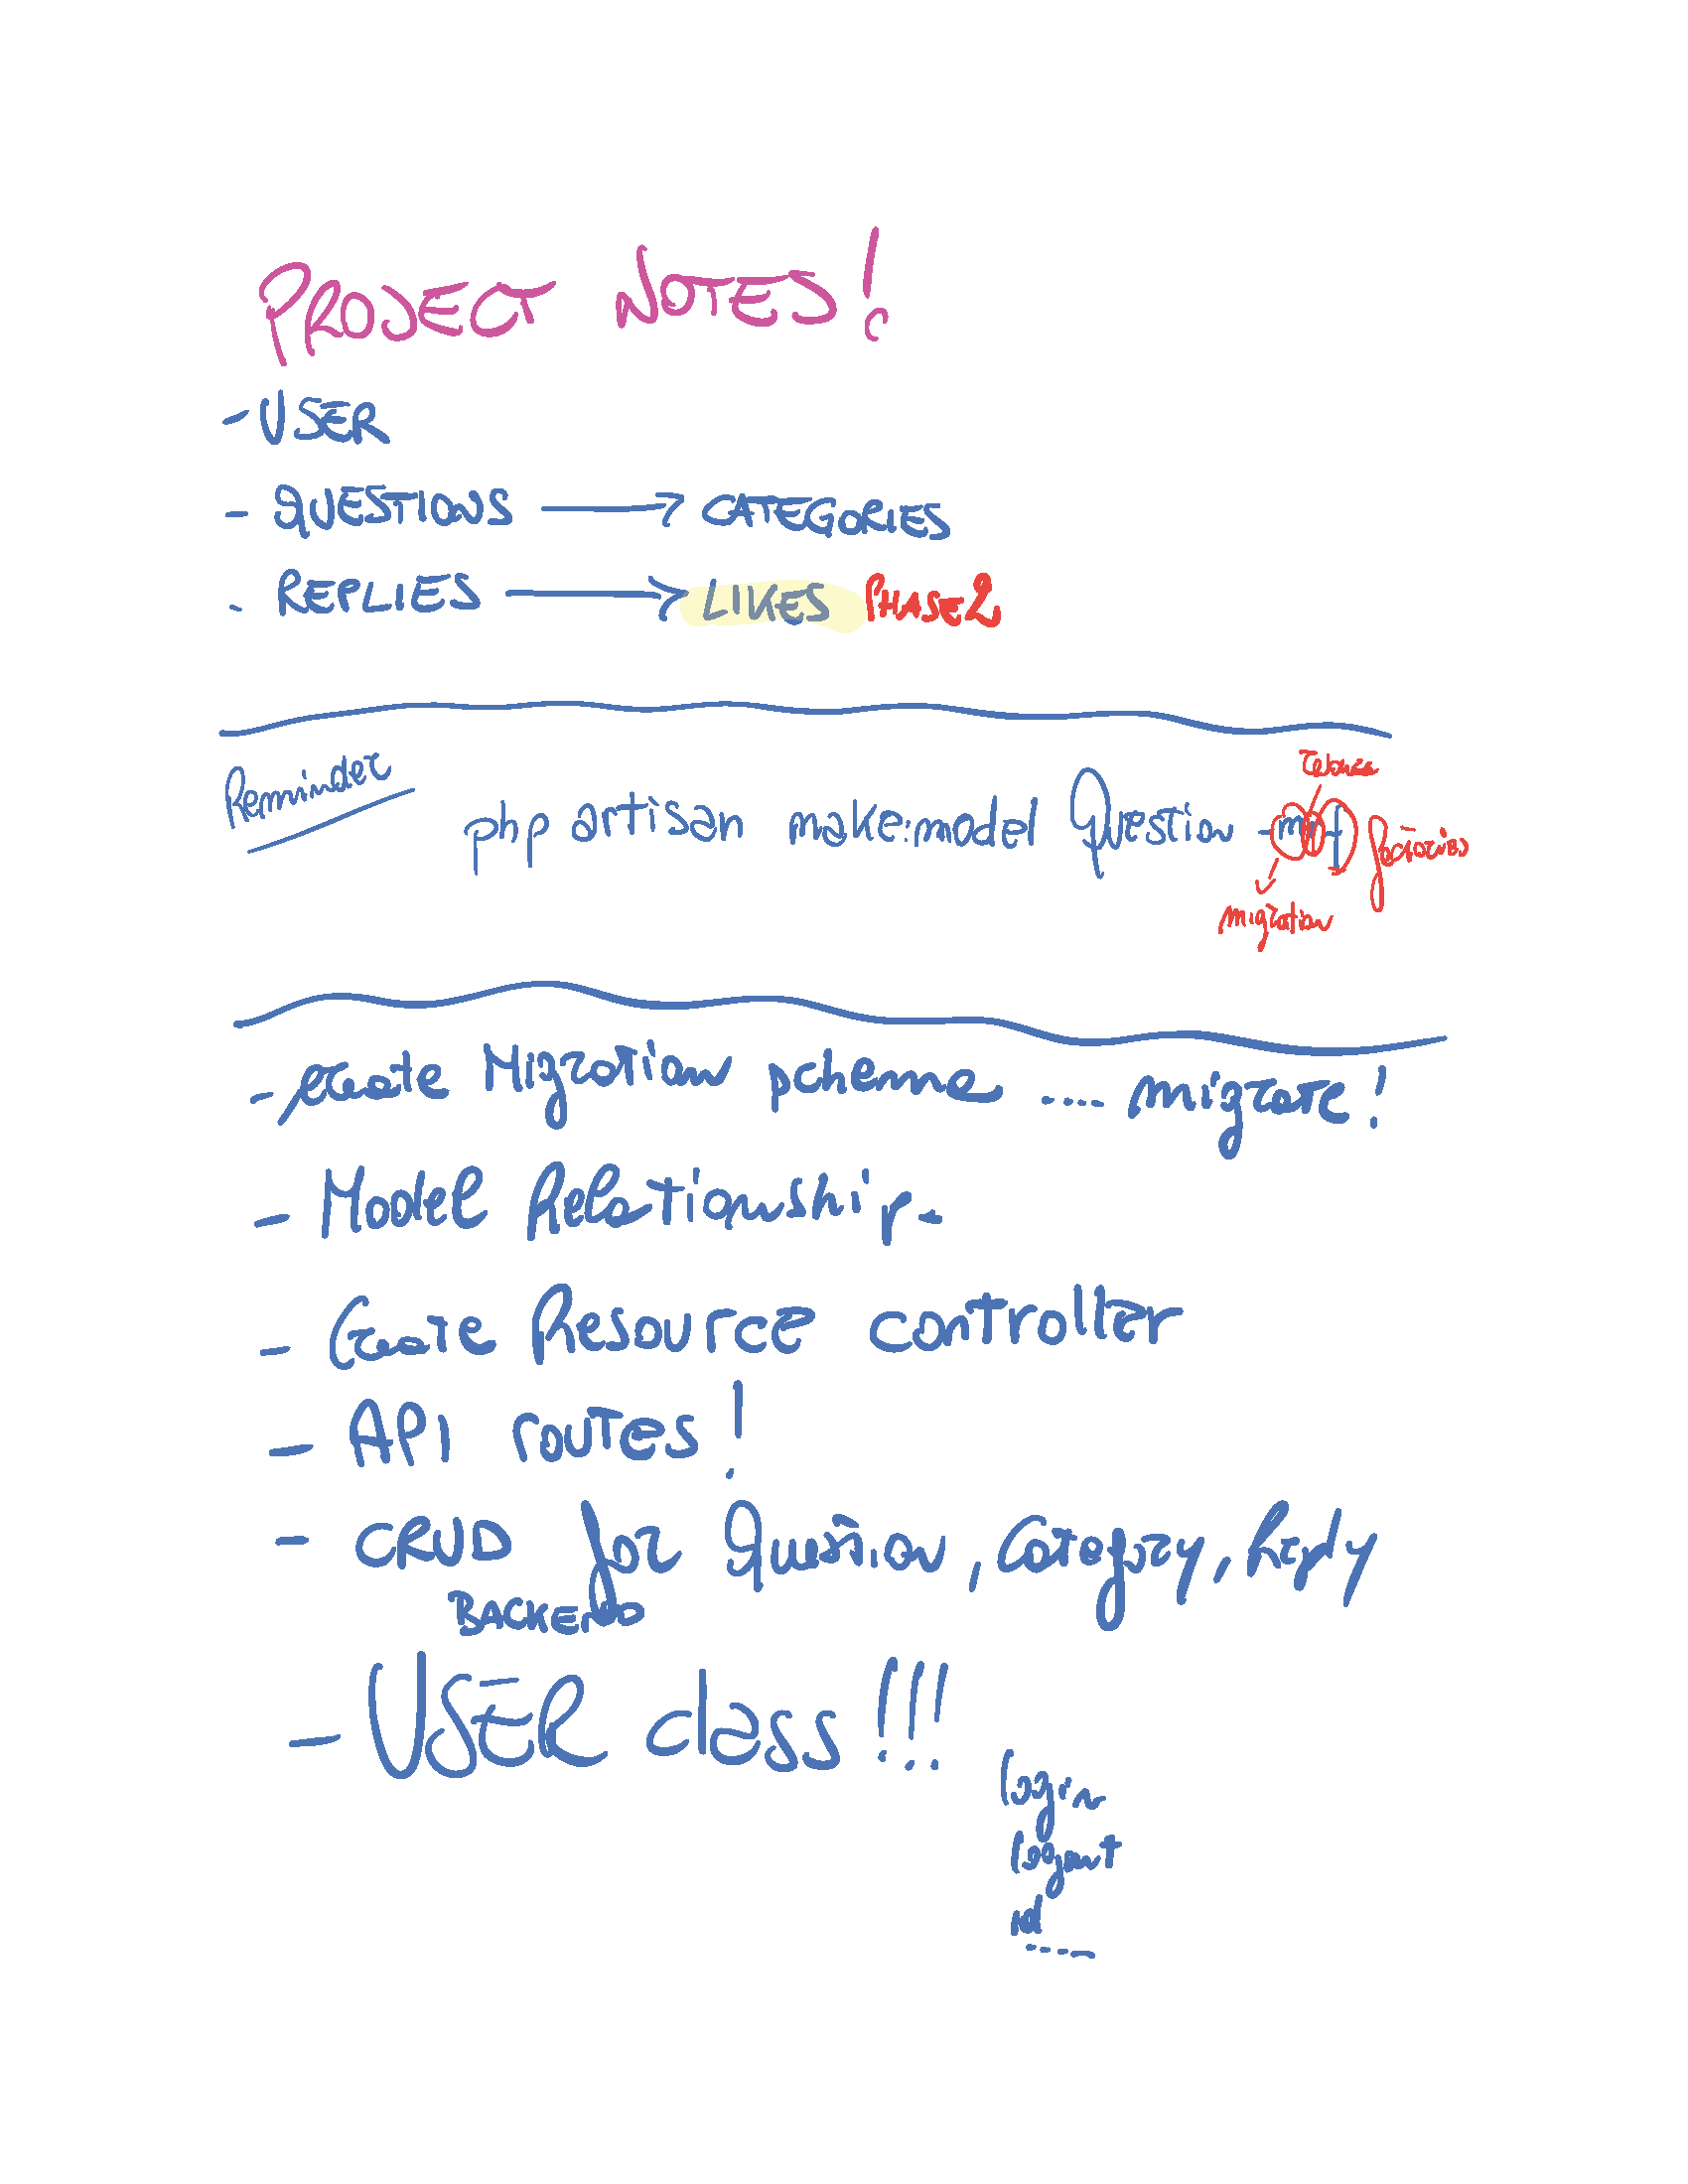 PROJECT NOTES!
- USER
- QUESTIONS → CATEGORIES
- REPLIES → LIKES PHASE 2
Reminder
php artisan make:model Question -mrf
factories
migration
- create Migration scheme .... migrate!
- Model Relationship.
- Create Resource controller
- API routes!
- CRUD for Question, Category, Reply
BACKEND
- USER class!!!
login
logout
-----